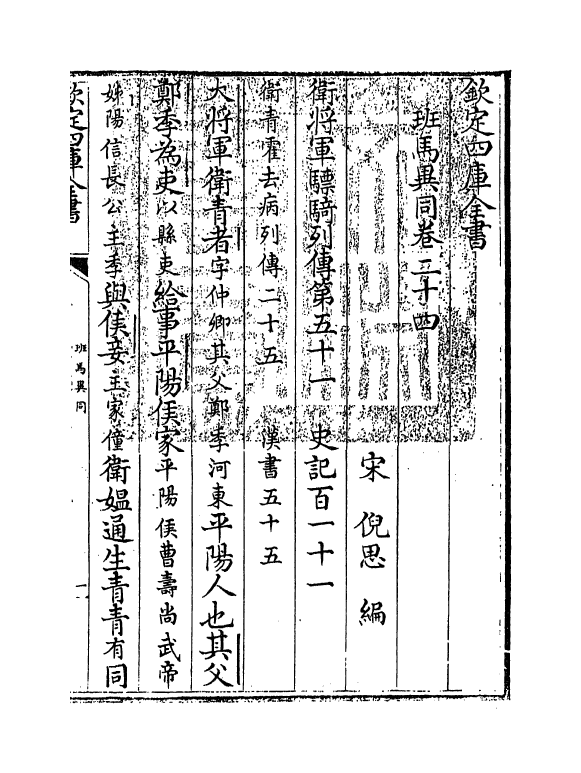 欽定四庫全書
班馬異同卷二十四
宋 倪思 編
衛將軍驃騎列傳第五十一 史記百一十一
衛青霍去病列傳二十五 漢書五十五
大將軍衛青者字仲卿其父鄭季河東平陽人也其父
鄭季為吏以縣吏給事平陽侯家平陽侯曹壽尚武帝
姊陽信長公主季與侯妾主家僮衛媼通生青青有同
欽定四庫全書
班馬異同
一